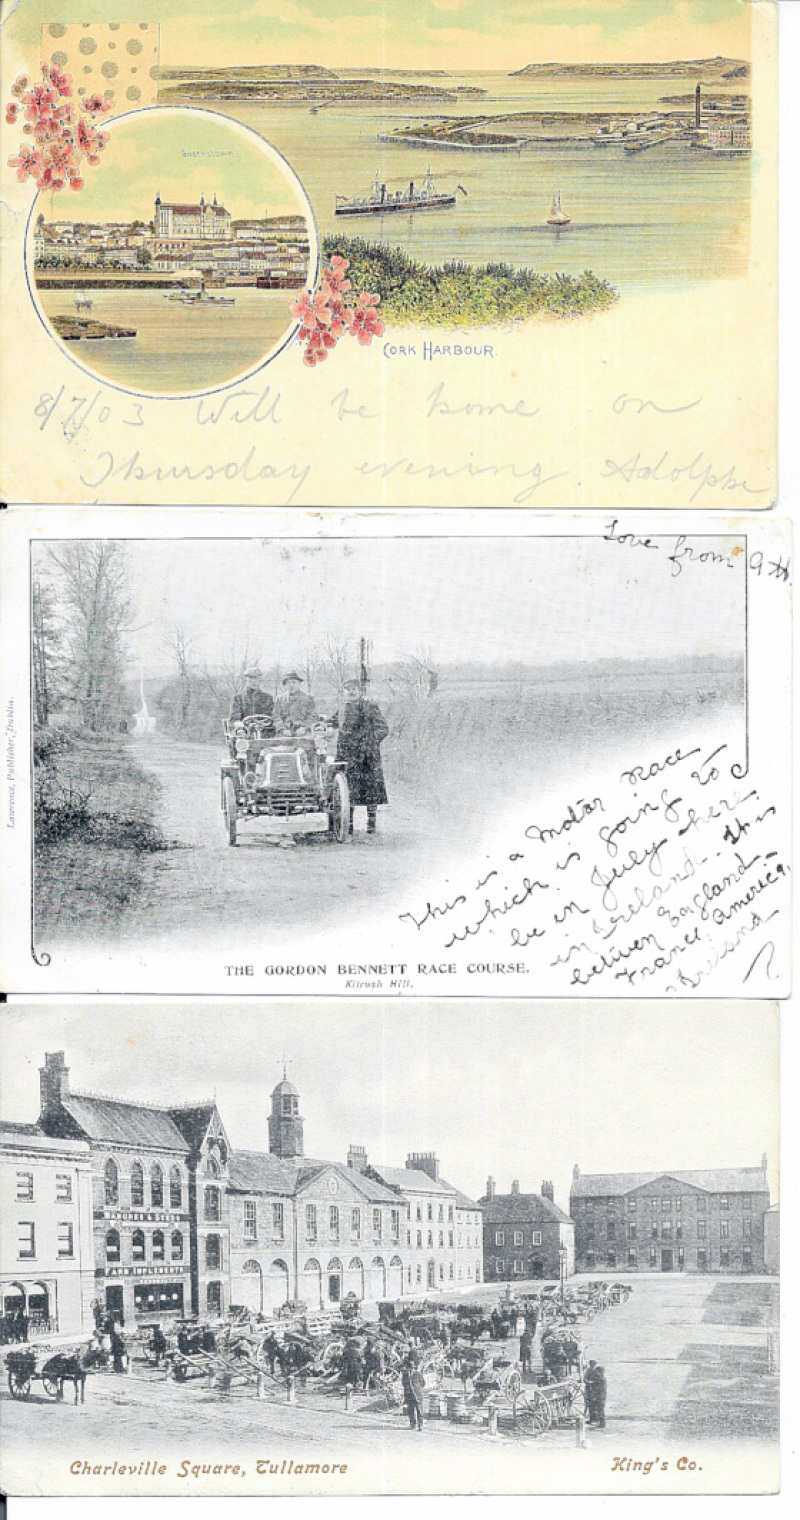 Queenstown
CORK HARBOUR.
8/7/03 Will be home on
Thursday evening. Adolphe
Love from
Lawrence, Publisher, Dublin.
This is a Motor Race
which is going to
be in July here
in Ireland. It is
between England
France, America,
Ireland
THE GORDON BENNETT RACE COURSE.
Kilrush Hill.
MANURES & SEEDS
FARM IMPLEMENTS
Charleville Square, Tullamore
King's Co.